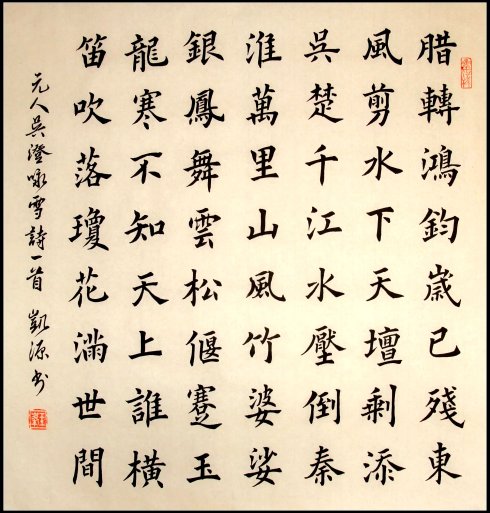 腊轉鴻鈞歲已殘東
風剪水下天壇剩添
吳楚千江水壓倒秦
淮萬里山風竹婆娑
銀鳳舞雲松偃蹇玉
龍寒不知天上誰橫
笛吹落瓊花滿世間
元人吳澄咏雪詩一首 凱源书